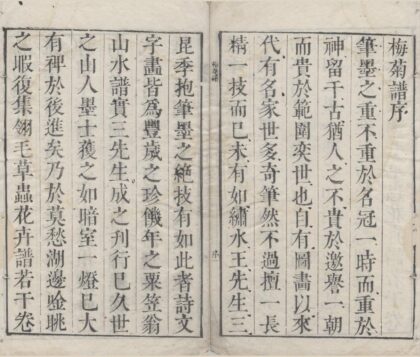 梅菊譜序
筆墨之重不重於名冠一時而重於
神留千古猶人之不貴於邀譽一朝
而貴於範圍奕世也自有圖畫以來
代有名家世多奇筆然不過擅一長
精一技而已未有如繡水王先生三
昆季抱筆墨之絕技有如此者詩文
字畫皆為豐歲之珍饑年之粟笠翁
山水譜實三先生成之刊行已久世
之山人墨士獲之如暗室一燈已大
有裨於後進矣乃於莫愁湖邊臨眺
之暇復集翎毛草蟲花卉譜若干卷